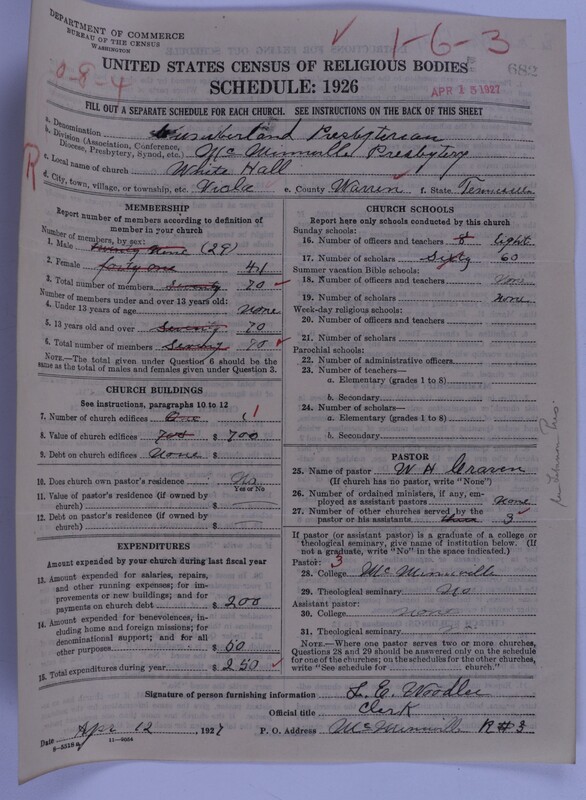 DEPARTMENT OF COMMERCE
BUREAU OF THE CENSUS
WASHINGTON
1-6-3
0-8-4
682
UNITED STATES CENSUS OF RELIGIOUS BODIES
SCHEDULE: 1926
APR 15 1927
FILL OUT A SEPARATE SCHEDULE FOR EACH CHURCH. SEE INSTRUCTIONS ON THE BACK OF THIS SHEET
a. Denomination Cumberland Presbyterian
b. Division (Association, Conference, Diocese, Presbytery, Synod, etc.) McMinnville Presbytery
c. Local name of church White Hall
R
d. City, town, village, or township, etc. Viola e. County Warren f. State Tennessee
MEMBERSHIP
Report number of members according to definition of member in your church
Number of members, by sex:
1. Male twenty nine (29)
2. Female forty one 41
3. Total number of members seventy 70
Number of members under and over 13 years old:
4. Under 13 years of age none
5. 13 years old and over seventy 70
6. Total number of members seventy 70
NOTE.—The total given under Question 6 should be the same as the total of males and females given under Question 3.
CHURCH BUILDINGS
See instructions, paragraphs 10 to 12
7. Number of church edifices One 1
8. Value of church edifices 700 $ 700
9. Debt on church edifices None $
10. Does church own pastor's residence No
Yes or No
11. Value of pastor's residence (if owned by church) $
12. Debt on pastor's residence (if owned by church) $
EXPENDITURES
Amount expended by your church during last fiscal year
13. Amount expended for salaries, repairs, and other running expenses; for improvements or new buildings; and for payments on church debt $ 200
14. Amount expended for benevolences, including home and foreign missions; for denominational support; and for all other purposes $ 50
15. Total expenditures during year $ 250
CHURCH SCHOOLS
Report here only schools conducted by this church
Sunday schools:
16. Number of officers and teachers 8 Eight
17. Number of scholars Sixty 60
Summer vacation Bible schools:
18. Number of officers and teachers None
19. Number of scholars None
Week-day religious schools:
20. Number of officers and teachers
21. Number of scholars
Parochial schools:
22. Number of administrative officers
23. Number of teachers—
a. Elementary (grades 1 to 8)
b. Secondary
24. Number of scholars—
a. Elementary (grades 1 to 8)
b. Secondary
PASTOR
25. Name of pastor W H Craven
(If church has no pastor, write "None")
26. Number of ordained ministers, if any, employed as assistant pastors None
27. Number of other churches served by the pastor or his assistants 3
If pastor (or assistant pastor) is a graduate of a college or theological seminary, give name of institution below. (If not a graduate, write "No" in the space indicated.)
Pastor: 3
28. College McMinnville
29. Theological seminary No
Assistant pastor:
30. College none
31. Theological seminary
NOTE.—Where one pastor serves two or more churches, Questions 28 and 29 should be answered only on the schedule for one of the churches; on the schedules for the other churches, write "See schedule for church."
Signature of person furnishing information L. E. Woodlee
Official title Clerk
Date Apr 12, 1927 P. O. Address McMinnville R#3
8-5518a 11-9664